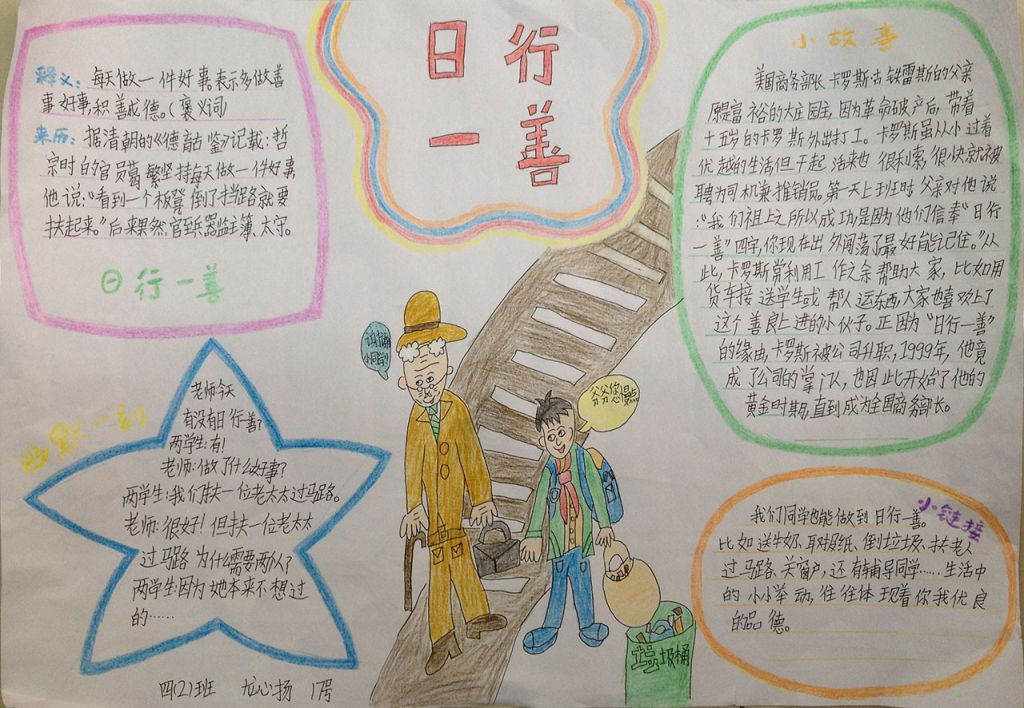 日行
一善
释义：每天做一件好事,表示多做善
事好事,积善成德。(褒义词)
来历：据清朝的《德育古鉴》记载：哲
宗时的官员葛繁坚持每天做一件好事
他说:“看到一个板凳倒了挡路就要
扶起来。”后来果然官至
器监主簿、太守。
日行一善
小故事
美国商务部长卡罗斯·古铁雷斯的父亲
原是富裕的大庄园主,因为革命破产后,带着
十五岁的卡罗斯外出打工。卡罗斯虽从小过着
优越的生活但干起活来也很利索,很快就被
聘为司机兼推销员。第一天上班时父亲对他说
:“我们祖上之所以成功是因为他们信奉“日行
一善”四字,你现在出外闯荡了最好能记住。”从
此,卡罗斯常利用工作之余帮助大家,比如用
货车接送学生或帮人运东西,大家也喜欢上了
这个善良上进的小伙子。正因为“日行一善”
的缘由,卡罗斯被公司升职,1999年,他竟
成了公司的掌门人,也因此开始了他的
黄金时期,直到成为全国商务部长。
幽默一刻
老师:今天
有没有日行善?
两学生:有!
老师:做了什么好事?
两学生:我们扶一位老太太过马路。
老师:很好!但扶一位老太太
过马路为什么需要两人?
两学生:因为她本来不想过
的……
小同学!
爷爷您慢点
垃圾桶
小链接
我们同学也能做到日行一善。
比如送牛奶、取报纸、倒垃圾、扶老人
过马路、关窗户,还有辅导同学……生活中
的小小举动,往往体现着你我优良
的品德。
四(2)班 尤心扬 17号